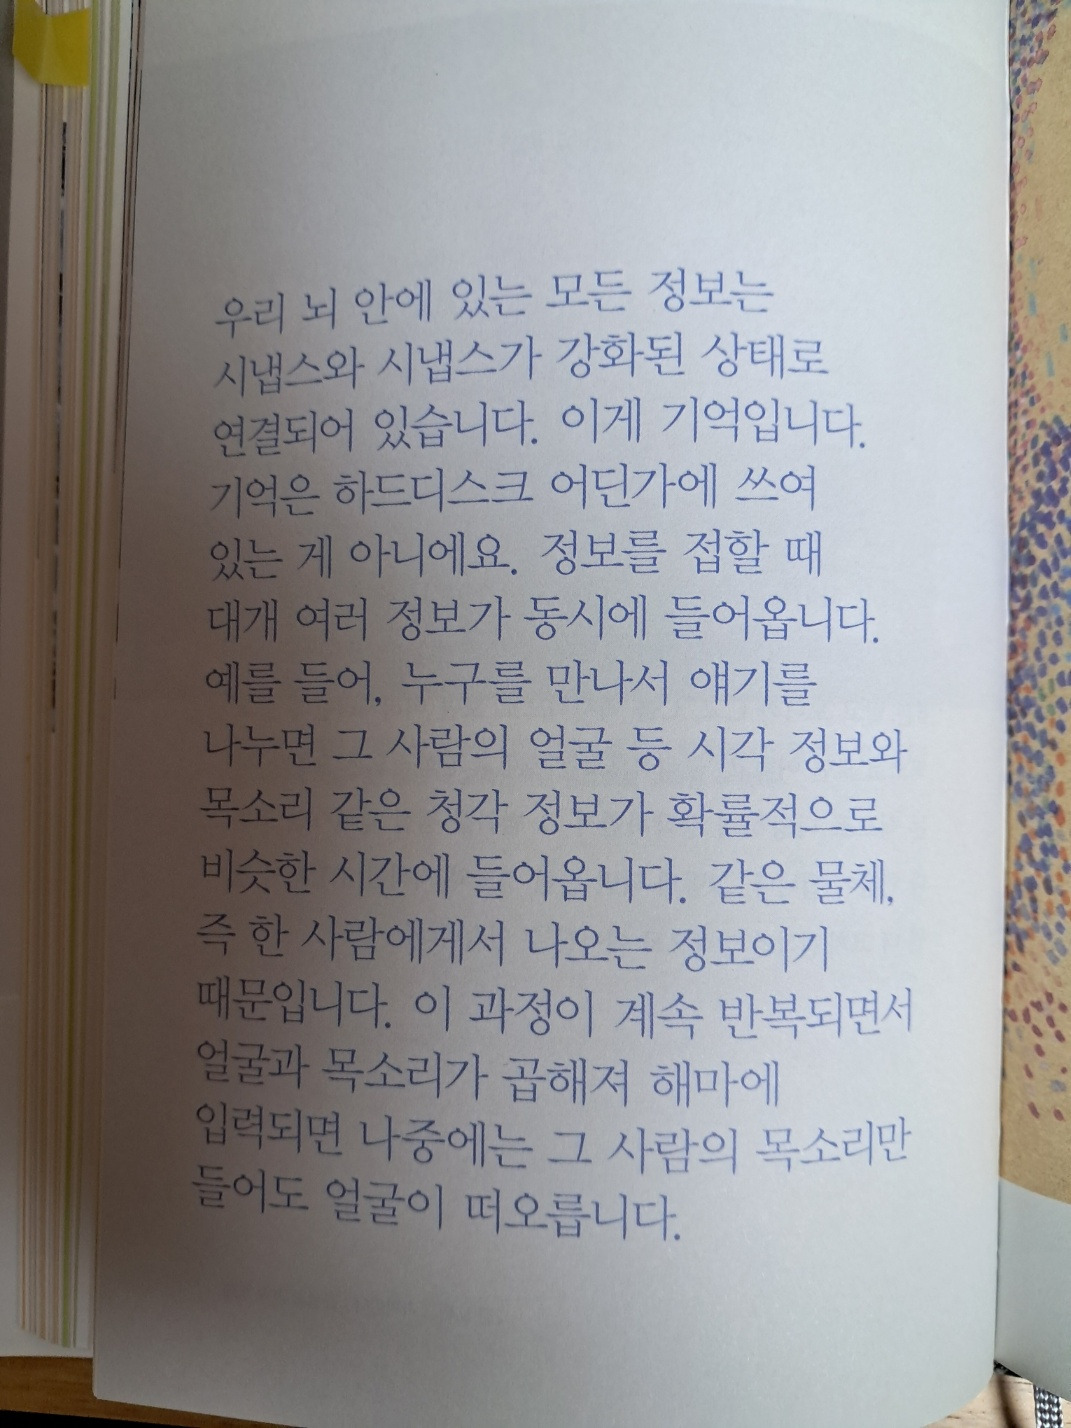 우리 뇌 안에 있는 모든 정보는
시냅스와 시냅스가 강화된 상태로
연결되어 있습니다. 이게 기억입니다.
기억은 하드디스크 어딘가에 쓰여
있는 게 아니에요. 정보를 접할 때
대개 여러 정보가 동시에 들어옵니다.
예를 들어, 누구를 만나서 얘기를
나누면 그 사람의 얼굴 등 시각 정보와
목소리 같은 청각 정보가 확률적으로
비슷한 시간에 들어옵니다. 같은 물체,
즉 한 사람에게서 나오는 정보이기
때문입니다. 이 과정이 계속 반복되면서
얼굴과 목소리가 곱해져 해마에
입력되면 나중에는 그 사람의 목소리만
들어도 얼굴이 떠오릅니다.